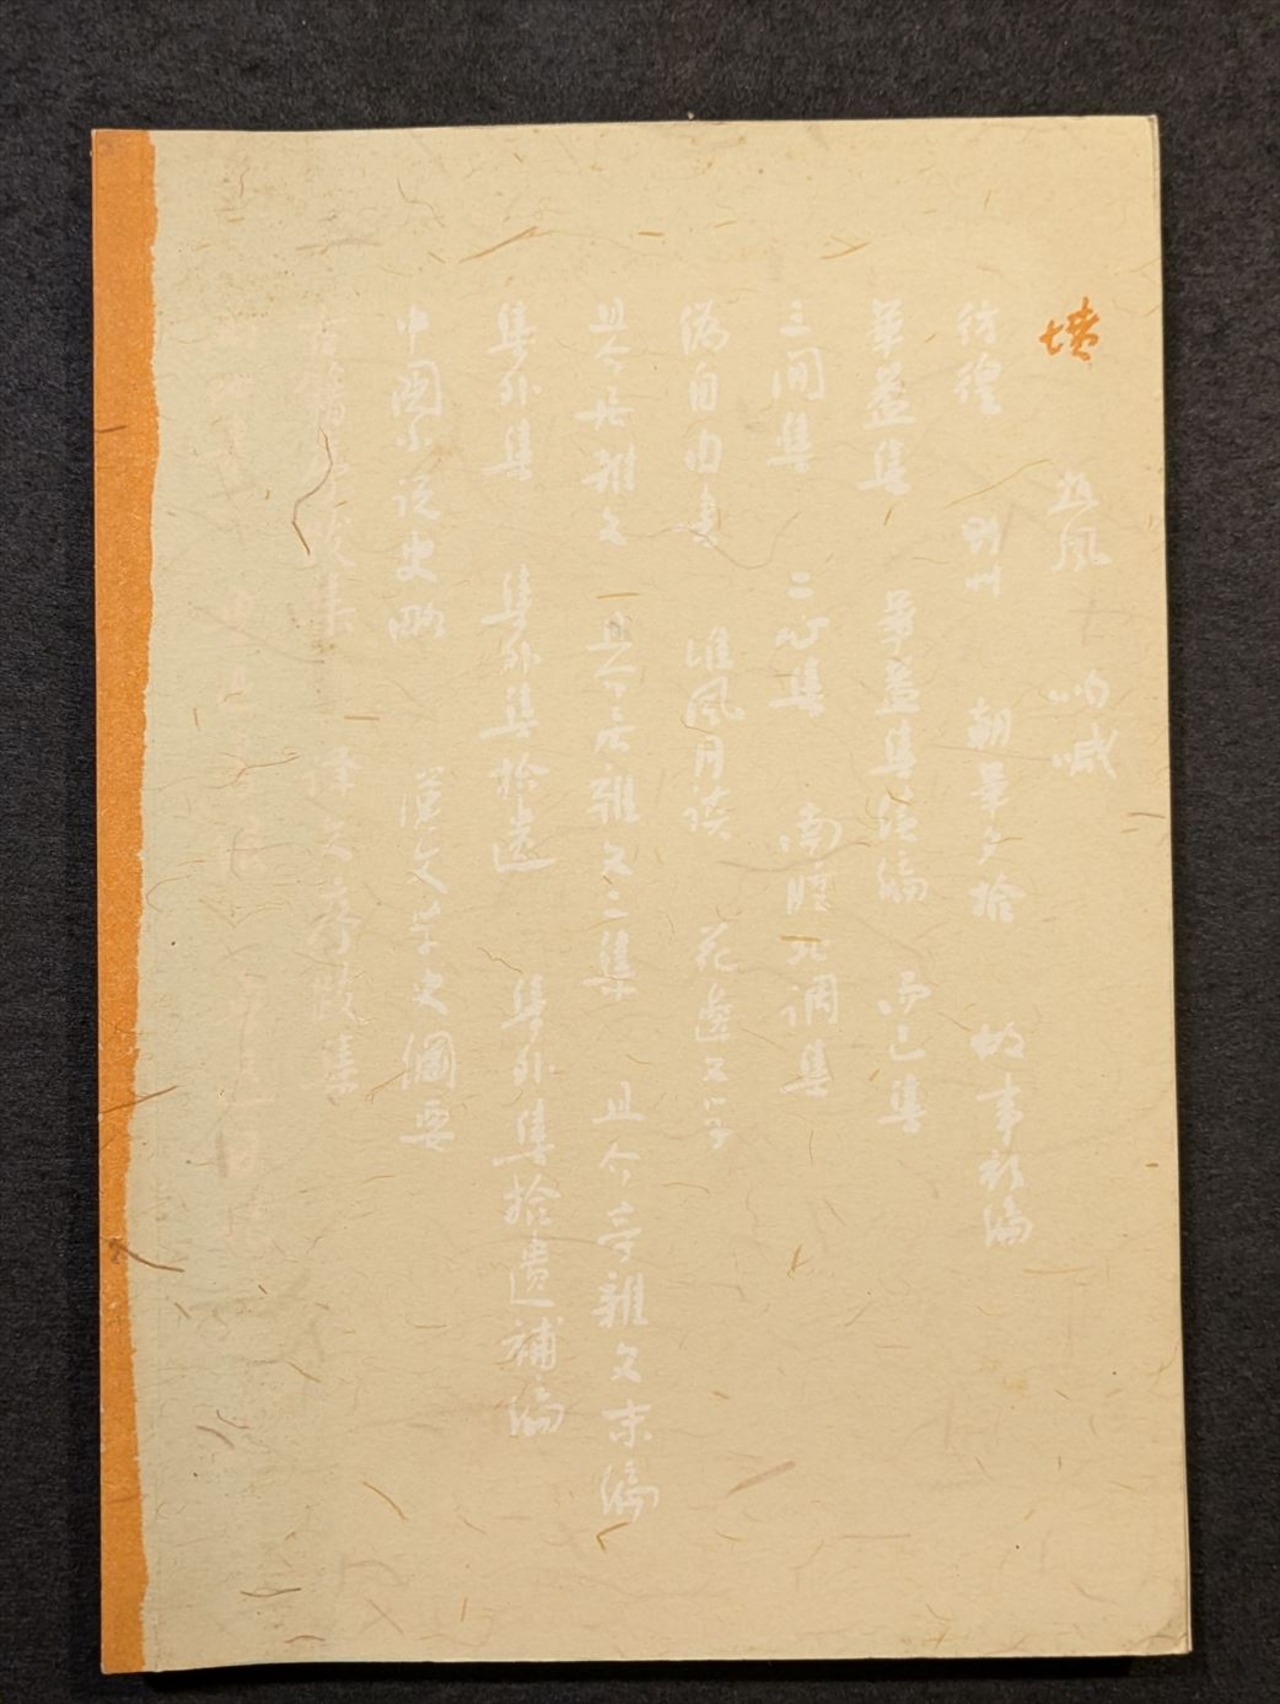 墳 熱風 吶喊
彷徨 野艸 朝華夕拾 故事新編
華蓋集 華蓋集續編 而已集
三閒集 二心集 南腔北調集
偽自由書 准風月談 花邊文学
且介亭雜文 且介亭雜文二集 且介亭雜文末編
集外集 集外集拾遺 集外集拾遺補編
中國小說史略 漢文学史綱要
古籍序跋集 譯文序跋集